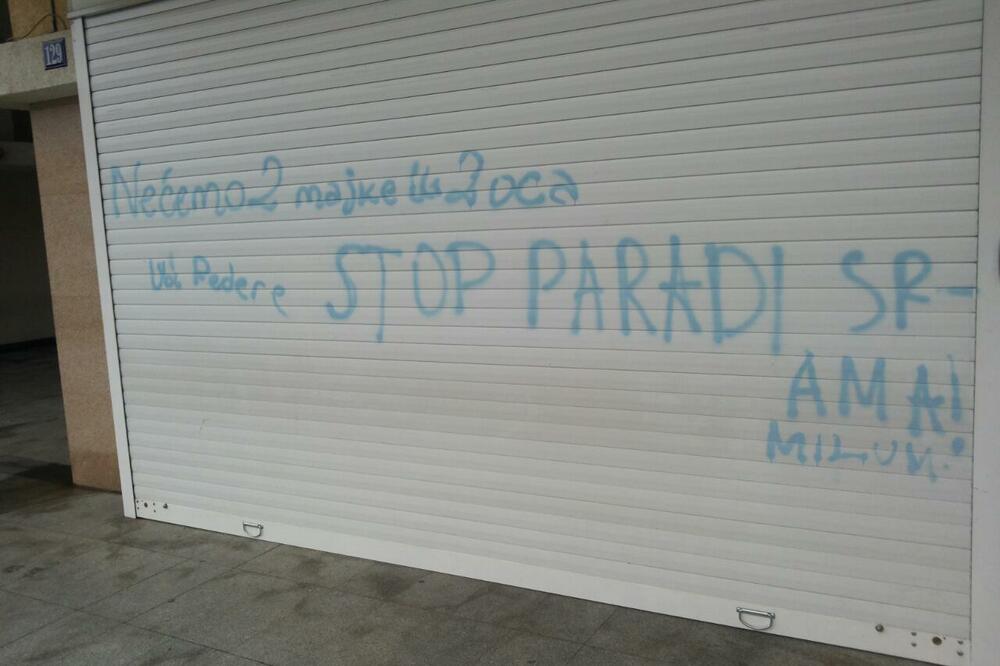 129
Nećemo 2 majke ili 2 oca
Ubi Pedere STOP PARADI SR-
AMAI